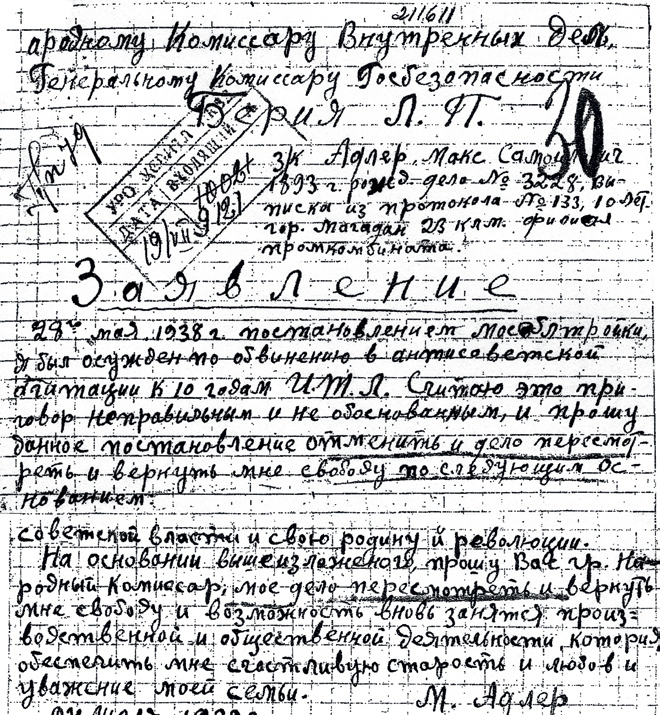 211611
ародному Комиссару Внутренных Дел,
Генеральному Комиссару Госбезопасности
Берия Л. П.
30
УРО УСВИТЛ
ДАТА ВХОДЯЩИЙ №
19/VII
з/к Адлер, Макс Самойлович
1893 г рожд. дело № 3228, вы-
писка из протокола № 133, 10 лет.
гор. Магадан 23 клм. филиал
промкомбината.
Заявление
28го мая 1938 г. постановлением Мособлтройки,
я был осужден по обвинению в антисоветской
агитации к 10 годам И.Т.Л. Считаю это при-
говор неправильным и не обоснованным, и прошу
данное постановление отменить и дело пересмот-
реть и вернуть мне свободу по следующим ос-
нованием:
советской власти и свою родину и революции.
На основании вышеизложеного, прошу Вас гр. На-
родный Комиссар, мое дело пересмотреть и вернуть
мне свободу и возможность вновь занятся произ-
водственной и общественной деятельности, котория
обеспечить мне счастливую старость и любов и
уважение моей семьи.
М. Адлер